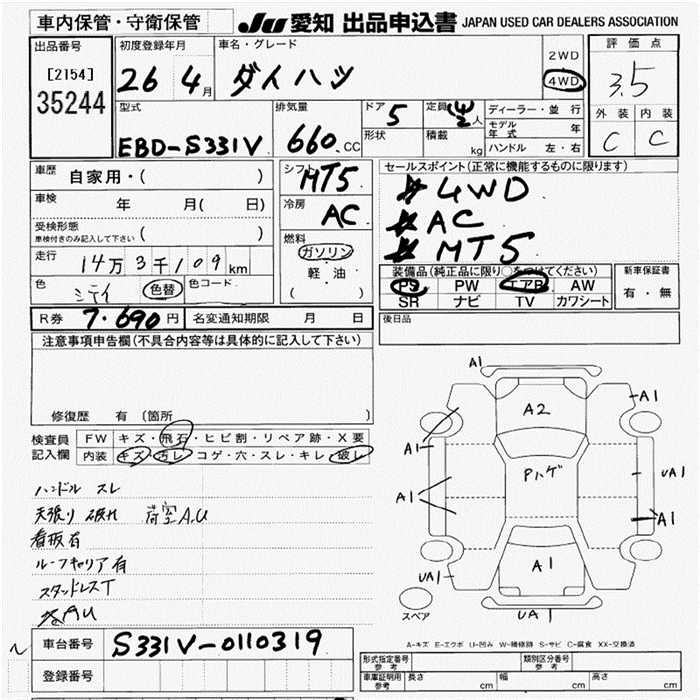 車内保管・守衛保管
JU 愛知 出品申込書 JAPAN USED CAR DEALERS ASSOCIATION
出品番号
[2154]
35244
初度登録年月
26 4月
車名・グレード
ダイハツ
2WD
4WD
評価点
3.5
外装 内装
C C
型式
EBD-S331V
排気量
660.CC
ドア 5
形状
定員 人
積載 kg
ディーラー・並行
モデル年式 年
ハンドル 左・右
車歴
自家用・( )
車検
年 月( 日)
受検形態
車検付きのみ記入して下さい ( )
走行
14万3千109km
色
色替
色コード
シフト
MT5
冷房
AC
燃料
ガソリン
軽・油
( )
セールスポイント(正常に機能するものに限ります)
4WD
AC
MT5
装備品(純正品に限り○をつけてください)
PS PW エアB AW
SR ナビ TV カワシート
新車保証書
有・無
R券 7.690円 名変通知期限 月 日
後日品
注意事項申告欄(不具合内容等は具体的に記入して下さい)
修復歴 有 〔箇所 〕
検査員記入欄
FW キズ・飛石・ヒビ割・リペア跡・X要
内装 キズ・汚レ・コゲ・穴・スレ・キレ・破レ
ハンドル スレ
天張り 破れ 荷室A.U
看板有
ルーフキャリア有
スタッドレスT
A1
A2
A1
A1
Pハゲ
UA1
A1
A1
UA1
A1
UA1
UA1
スペア
A-キズ E-エクボ U-凹み W-補修跡 S-サビ C-腐食 XX-交換済
車台番号 S331V-0110319
登録番号
形式指定番号 参考
類別区分番号 参考
車庫証明用 参考
長さ cm 幅 cm 高さ cm